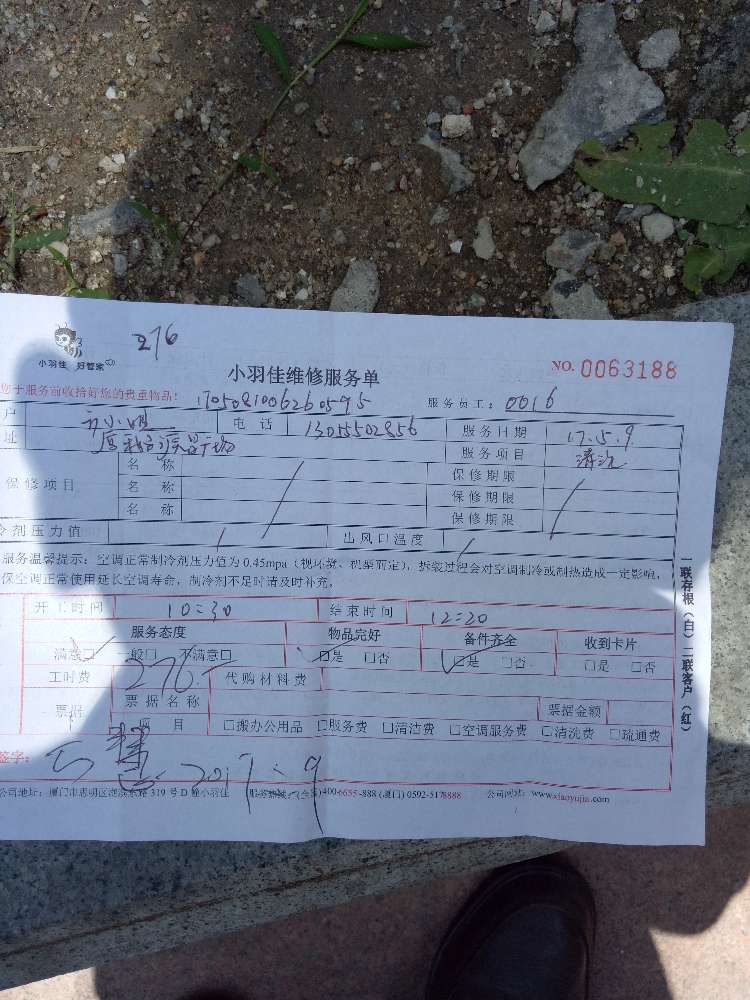 276
小羽佳 好管家
小羽佳维修服务单
NO. 0063188
您于服务前收拾好您的贵重物品!
1705081006260595
服务员工: 0016
户 小姐 电话 13055502856 服务日期 17.5.9
址 广场 服务项目 清洗
保修项目 名称 保修期限
名称 保修期限
名称 保修期限
冷剂压力值 出风口温度
服务温馨提示: 空调正常制冷剂压力值为0.45mpa (视环境、机型而定), 拆装过程会对空调制冷或制热造成一定影响,
保空调正常使用延长空调寿命, 制冷剂不足时请及时补充。
开工时间 10:30 结束时间 12:20
服务态度 物品完好 备件齐全 收到卡片
满意□ 一般□ 不满意□ □是 □否 □是 □否 □是 □否
工时费 276.- 代购材料费
票据 票据名称 票据金额
项目 □搬办公用品 □服务费 □清洁费 □空调服务费 □清洗费 □疏通费
签字: 2017. 9
公司地址: 厦门市思明区 东路319号D幢小羽佳 服务热线: (全国)400-6655-888 (厦门) 0592-5178888 公司网站: www.xiaoyujia.com
一联存根(白) 二联客户(红)